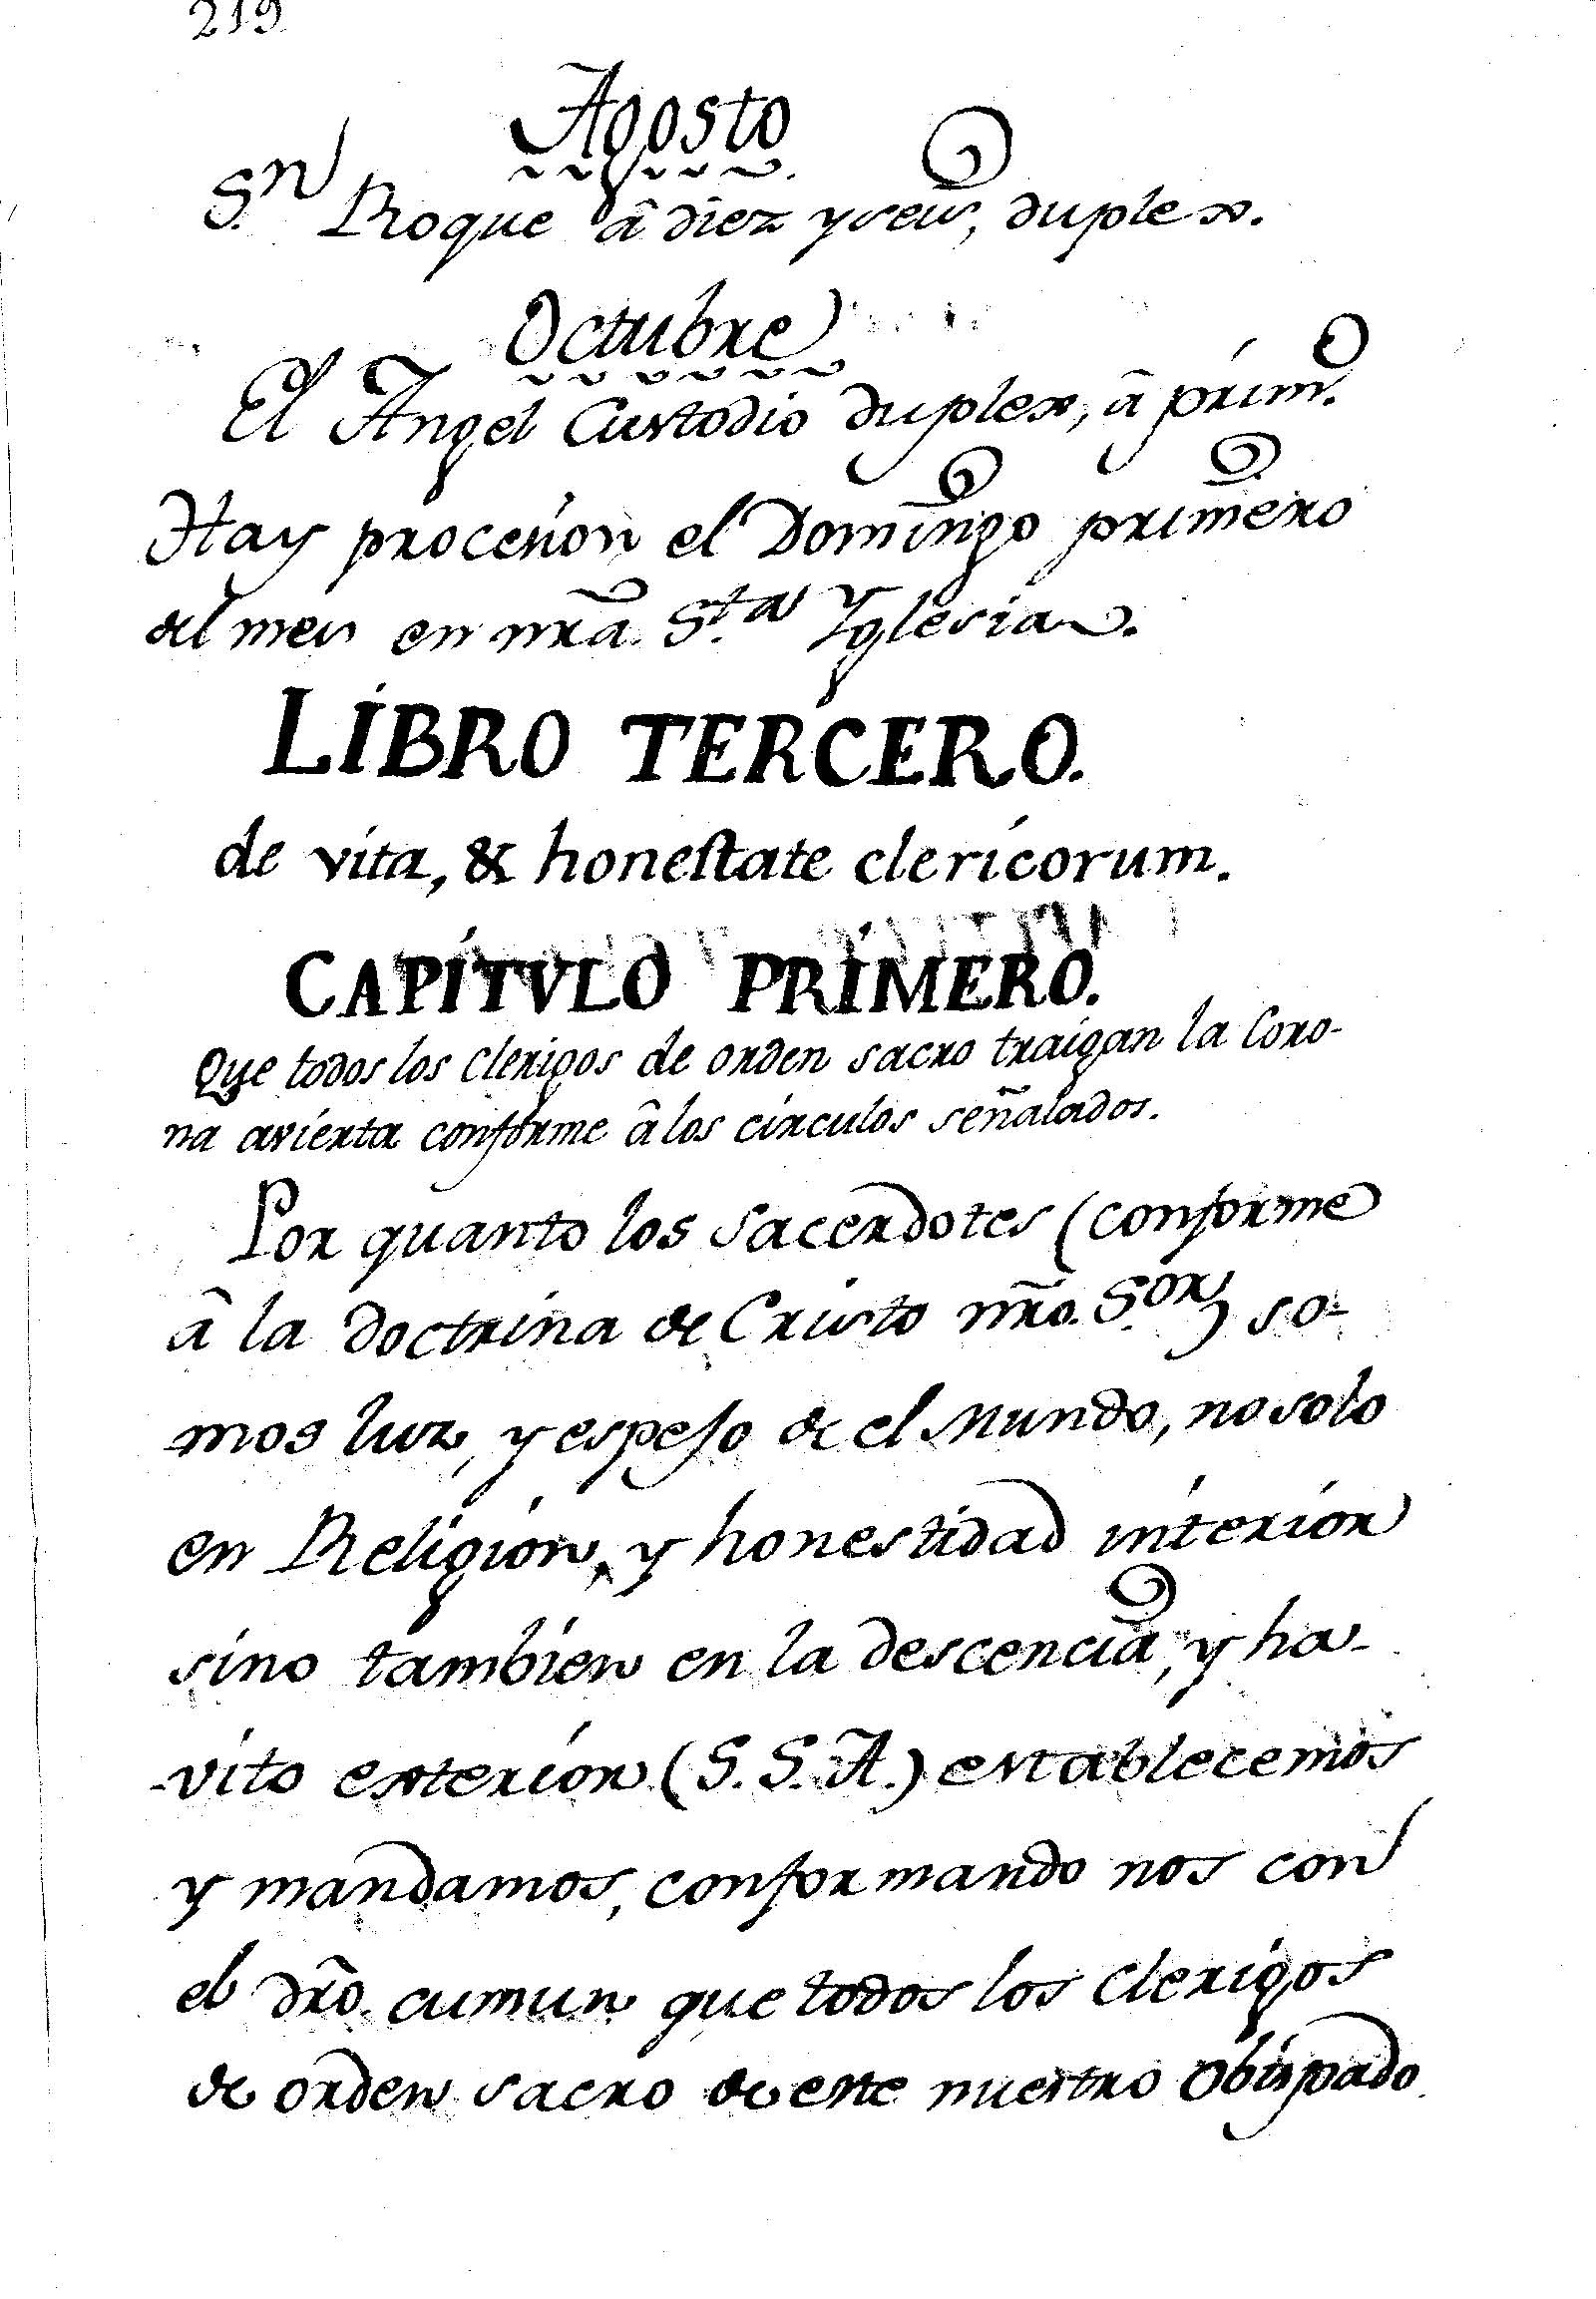 219
Agosto
S.n Roque â diez y seis, duplex.
Octubre
El Angel Custodio duplex, â prim.o
Hay procesion el Domingo primero
del mes en nr̃a. S.ta Yglesia.
LIBRO TERCERO.
de vita, & honestate clericorum.
CAPÍTVLO PRÍMERO.
Que todos los Clerigos de orden sacro traigan la Coro-
na avierta conforme â los circulos señalados.
Por quanto los sacerdotes (conforme
â la doctrina de Cristo nr̃o. S.or so-
mos luz, y espejo de el Mundo, no solo
en Religion, y honestidad interior
sino tambien en la descencia, y ha-
vito exterior (S. S. A.) establecemos
y mandamos, conformando nos con
el dr̃o. cumun que todos los Clerigos
de orden sacro de este nuestro Obispado